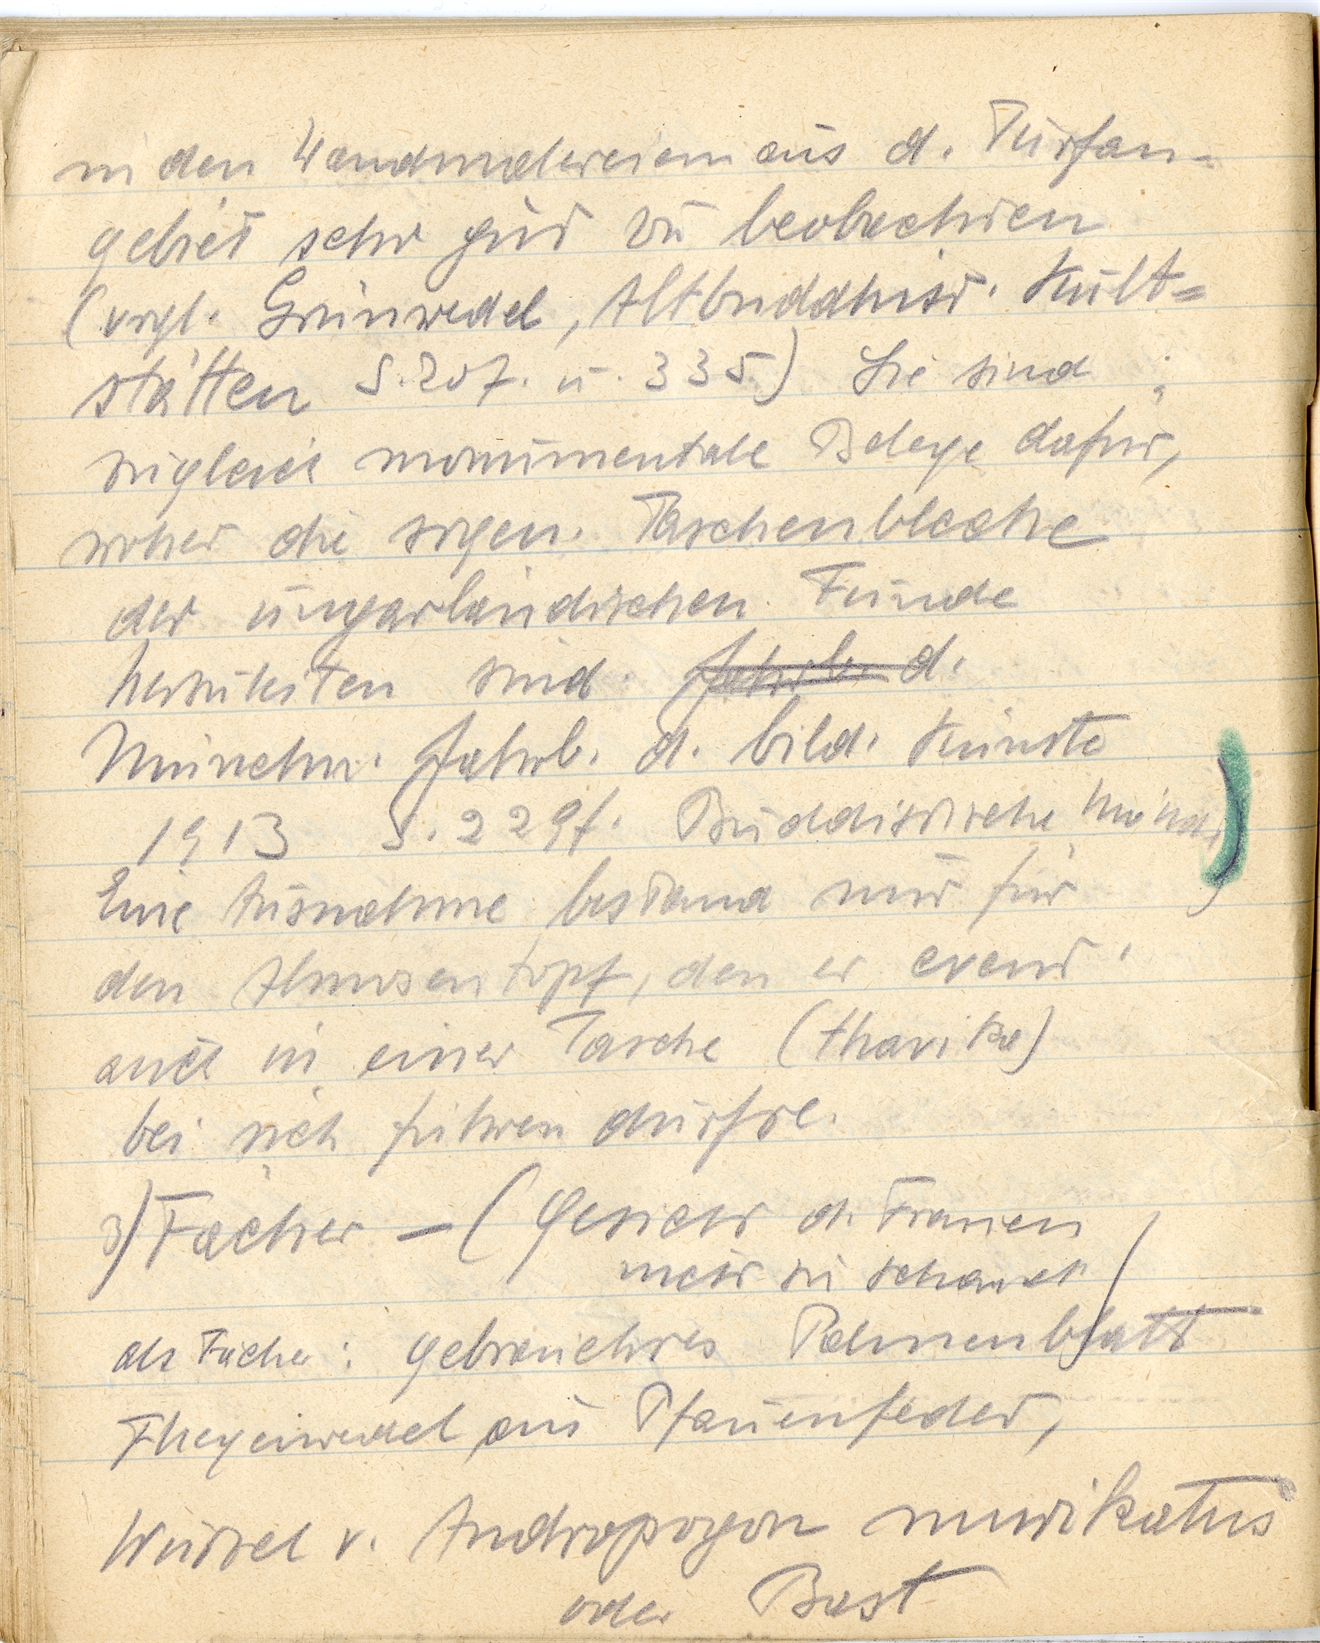 in den Wandmalereien aus d. Turfan-
gebiet sehr gut zu beobachten
(vrgl. Grünwedel, Altbuddhist. Kult=
stätten S. 207. u. 335) Sie sind
zugleich monumentale Belege dafür,
woher die sogen. Taschenbleche
der ungarländischen Funde
herzuleiten sind. Jahrb. d.
Münchn. Jahrb. d. bild. Künste
1913 S. 229f. Buddistische
Eine Ausnahme bestand nur für
den Almosentopf, den er event.
auch in einer Tasche (thavika)
bei sich führen durfte.
3) Fächer – (Gesicht d. Frauen
nicht zu schauen)
als Fächer: gebrauchtes Palmenblatt
Fliegenwedel aus Pfauenfeder,
Wurzel v. Andropogon murikatus
oder Bast